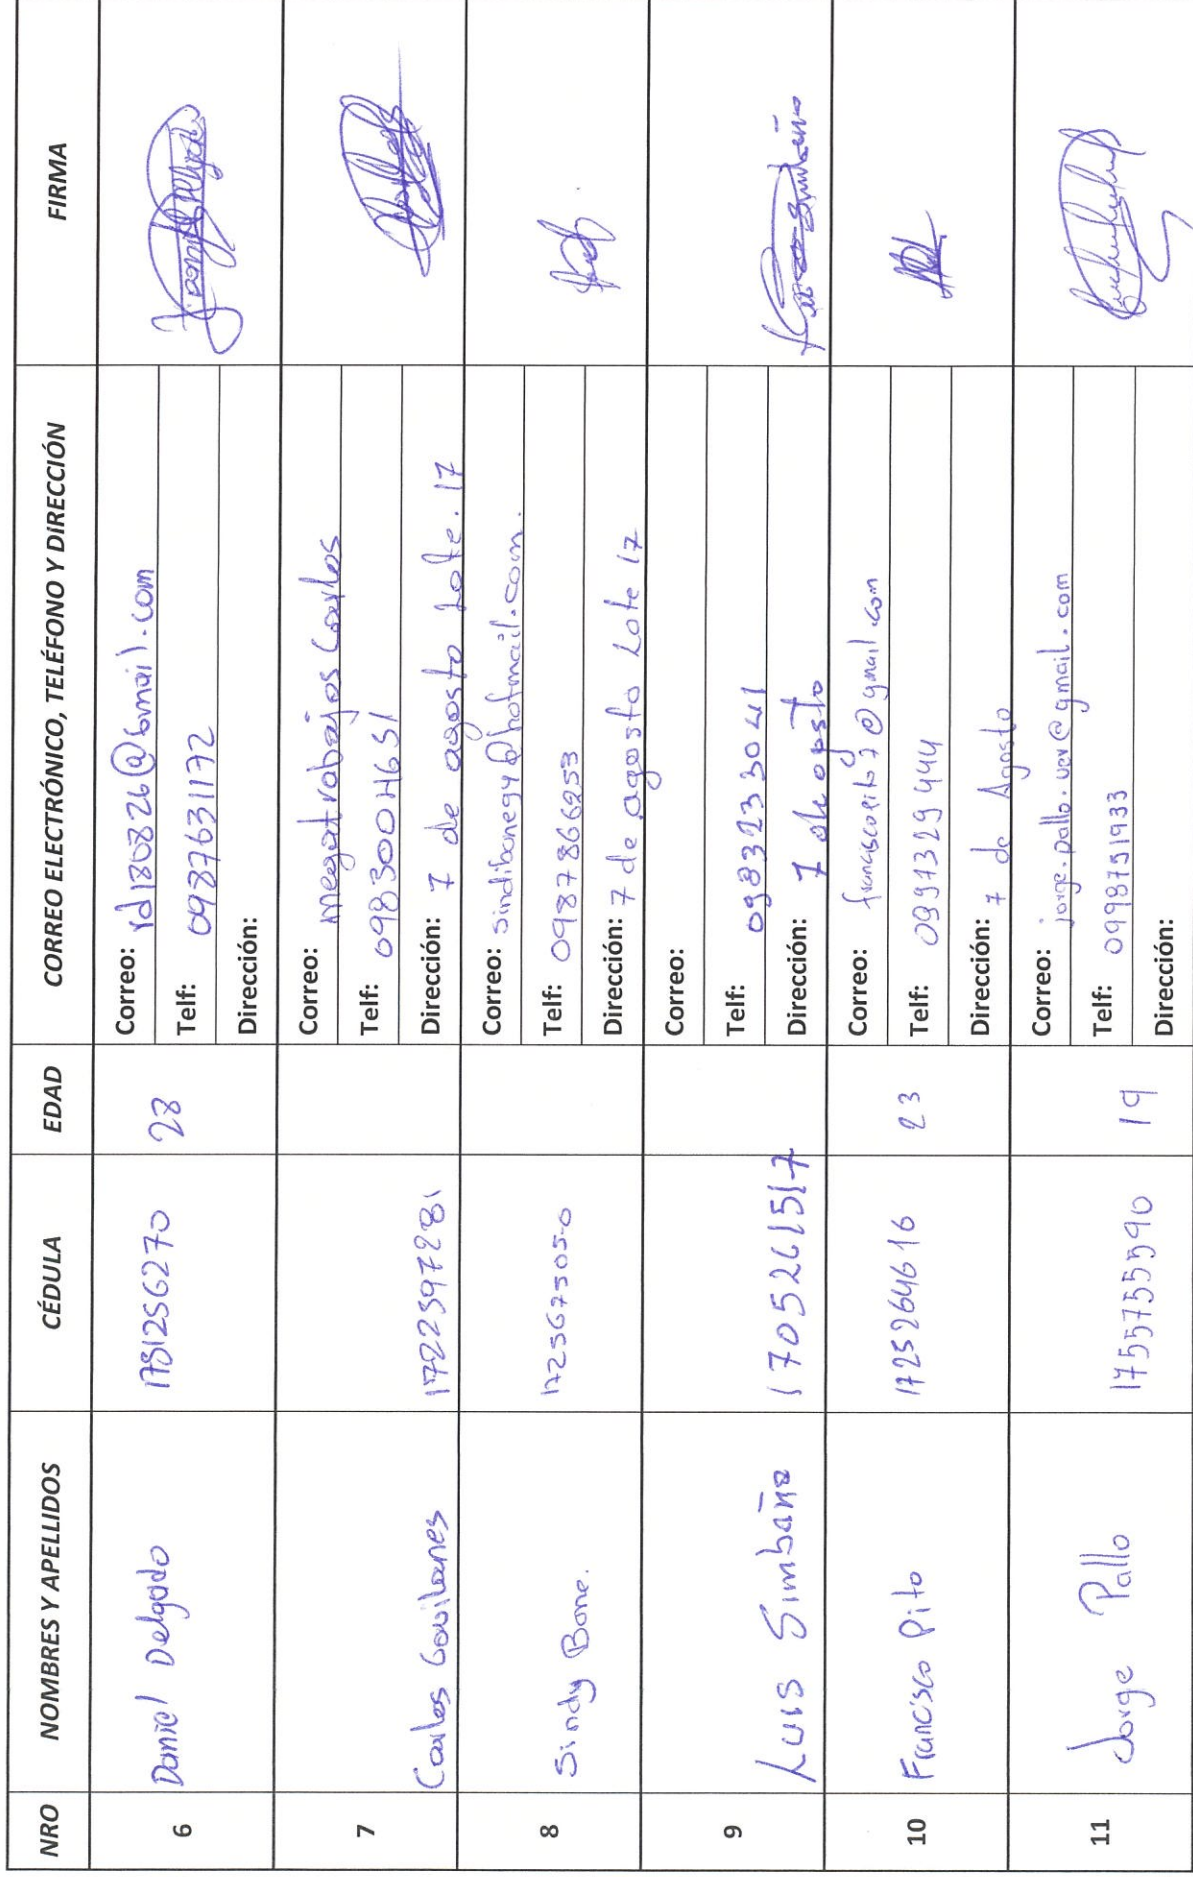 NRO NOMBRES Y APELLIDOS CÉDULA EDAD CORREO ELECTRÓNICO, TELÉFONO Y DIRECCIÓN FIRMA
6 Daniel Delgado 1751256270 28
Correo: rd180826@Gmail.com
Telf: 0987631172
Dirección:
7 Carlos Gavilanes 1722397281
Correo: megatrabajos Carlos
Telf: 0983004651
Dirección: 7 de agosto Lote. 17
8 Sindy Bone. 172567505-0
Correo: sindibonegy@hotmail.com.
Telf: 0987866953
Dirección: 7 de agosto Lote 17
9 Luis Simbaña 1705261517
Correo:
Telf: 0983233041
Dirección: 7 de agosto
10 Francisco Pito 1725264616 23
Correo: franciscopito7@gmail.com
Telf: 0991329444
Dirección: 7 de Agosto
11 Jorge Pallo 1755755590 19
Correo: jorge.pallo.uev@gmail.com
Telf: 0998751933
Dirección: